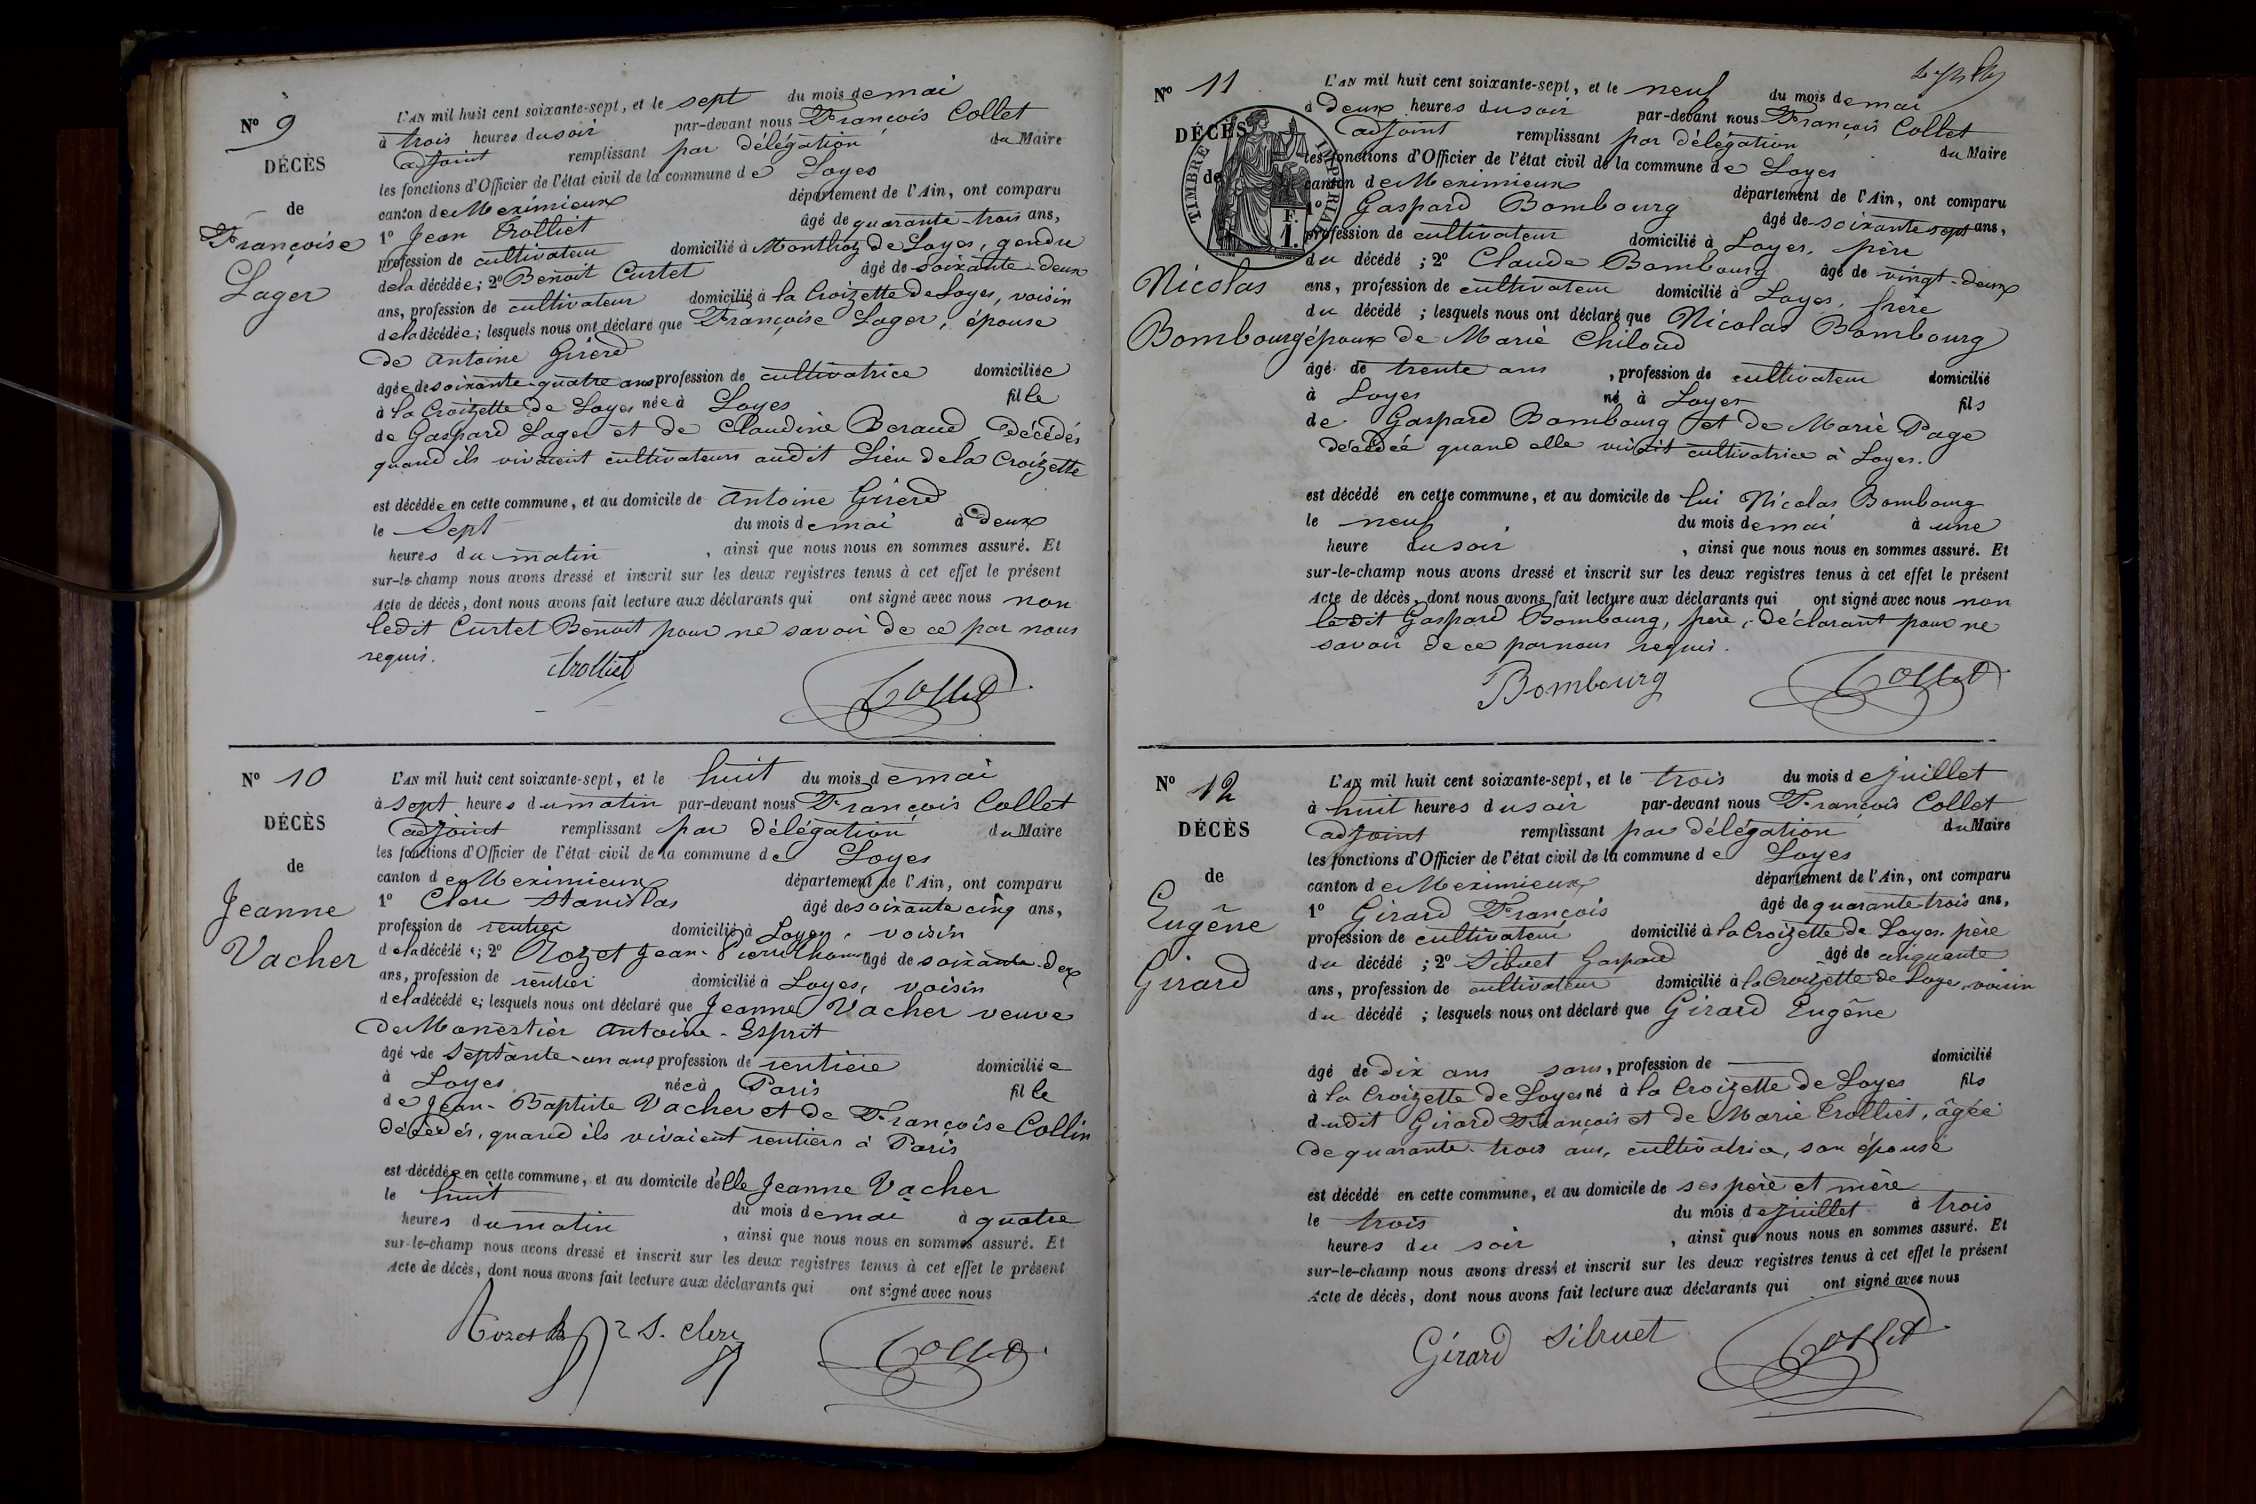 N° 9
DÉCÈS
de
Françoise
Lager
L'AN mil huit cent soixante-sept, et le sept du mois de mai
à trois heures du soir par-devant nous François Collet
adjoint remplissant par délégation du Maire
les fonctions d'Officier de l'état civil de la commune de Loyes
canton de Meximieux département de l'Ain, ont comparu
1° Jean Trolliet âgé de quarante-trois ans,
profession de cultivateur domicilié à Monthoz de Loyes, gendre
de la décédée; 2° Benoit Curtet âgé de soixante-deux
ans, profession de cultivateur domicilié à la Croizette de Loyes, voisin
de la décédée; lesquels nous ont déclaré que Françoise Lager, épouse
de Antoine Girerd
âgée de soixante-quatre ans profession de cultivatrice domiciliée
à la Croizette de Loyes née à Loyes fille
de Gaspard Lager et de Claudine Beraud décédés
quand ils vivaient cultivateurs audit Lieu de la Croizette
est décédée en cette commune, et au domicile de Antoine Girerd
le Sept du mois de mai à deux
heures du matin, ainsi que nous nous en sommes assuré. Et
sur-le-champ nous avons dressé et inscrit sur les deux registres tenus à cet effet le présent
Acte de décès, dont nous avons fait lecture aux déclarants qui ont signé avec nous non
ledit Curtet Benoit pour ne savoir de ce par nous
requis.
Trolliet Collet
N° 10
DÉCÈS
de
Jeanne
Vacher
L'AN mil huit cent soixante-sept, et le huit du mois de mai
à sept heures du matin par-devant nous François Collet
adjoint remplissant par délégation du Maire
les fonctions d'Officier de l'état civil de la commune de Loyes
canton de Meximieux département de l'Ain, ont comparu
1° Clerc Stanislas âgé de soixante cinq ans,
profession de rentier domicilié à Loyes, voisin
de la décédée; 2° Rozet Jean-Pierre Thomas âgé de soixante-dix
ans, profession de rentier domicilié à Loyes, voisin
de la décédée; lesquels nous ont déclaré que Jeanne Vacher veuve
de Monestier Antoine-Esprit
âgé de septante-un ans profession de rentière domiciliée
à Loyes née à Paris fille
de Jean-Baptiste Vacher et de Françoise Collin
décédés, quand ils vivaient rentiers à Paris
est décédée en cette commune, et au domicile d'elle Jeanne Vacher
le huit du mois de mai à quatre
heures du matin, ainsi que nous nous en sommes assuré. Et
sur-le-champ nous avons dressé et inscrit sur les deux registres tenus à cet effet le présent
Acte de décès, dont nous avons fait lecture aux déclarants qui ont signé avec nous
Rozet S. Clerc Collet
N° 11
DÉCÈS
de
TIMBRE IMPÉRIAL
F.
1.
Nicolas
Bombourg
L'AN mil huit cent soixante-sept, et le neuf du mois de mai
à deux heures du soir par-devant nous François Collet
adjoint remplissant par délégation du Maire
les fonctions d'Officier de l'état civil de la commune de Loyes
canton de Meximieux département de l'Ain, ont comparu
1° Gaspard Bombourg âgé de soixante sept ans,
profession de cultivateur domicilié à Loyes, père
du décédé; 2° Claude Bombourg âgé de vingt-deux
ans, profession de cultivateur domicilié à Loyes, frère
du décédé; lesquels nous ont déclaré que Nicolas Bombourg
époux de Marie Chiloud
âgé de trente ans, profession de cultivateur domicilié
à Loyes né à Loyes fils
de Gaspard Bombourg et de Marie Page
décédée quand elle vivait cultivatrice à Loyes.
est décédé en cette commune, et au domicile de lui Nicolas Bombourg
le neuf du mois de mai à une
heure du soir, ainsi que nous nous en sommes assuré. Et
sur-le-champ nous avons dressé et inscrit sur les deux registres tenus à cet effet le présent
Acte de décès, dont nous avons fait lecture aux déclarants qui ont signé avec nous non
ledit Gaspard Bombourg, père, déclarant pour ne
savoir de ce par nous requis.
Bombourg Collet
N° 12
DÉCÈS
de
Eugêne
Girard
L'AN mil huit cent soixante-sept, et le trois du mois de juillet
à huit heures du soir par-devant nous François Collet
adjoint remplissant par délégation du Maire
les fonctions d'Officier de l'état civil de la commune de Loyes
canton de Meximieux département de l'Ain, ont comparu
1° Girard François âgé de quarante trois ans,
profession de cultivateur domicilié à la Croizette de Loyes, père
du décédé; 2° Sibuet Gaspard âgé de cinquante
ans, profession de cultivateur domicilié à la Croizette de Loyes, voisin
du décédé; lesquels nous ont déclaré que Girard Eugêne
âgé de dix ans sans, profession de domicilié
à la Croizette de Loyes né à la Croizette de Loyes fils
dudit Girard François et de Marie Trolliet, âgée
de quarante-trois ans, cultivatrice, son épouse
est décédé en cette commune, et au domicile de ses père et mère
le trois du mois de juillet à trois
heures du soir, ainsi que nous nous en sommes assuré. Et
sur-le-champ nous avons dressé et inscrit sur les deux registres tenus à cet effet le présent
Acte de décès, dont nous avons fait lecture aux déclarants qui ont signé avec nous
Girard Sibuet Collet